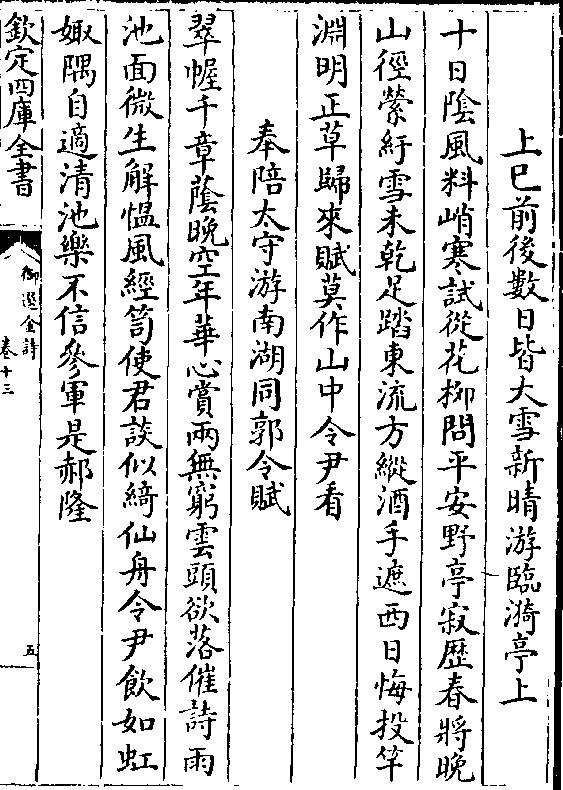 上巳前後數日皆大雪新晴游臨漪亭上
十日陰風料峭寒試從花柳問平安野亭寂歴春將晚
山徑縈紆雪未乾足踏東流方縱酒手遮西日悔投竿
淵明正草歸來賦莫作山中令尹看
奉陪太守游南湖同郭令賦
翠幄千章蔭晚空年華心賞兩無窮雲頭欲落催詩雨
池面微生解愠風經笥使君談似綺仙舟令尹飲如虹
娵隅自適清池樂不信參軍是郝隆
欽定四庫全書
御選金詩
卷十三
五